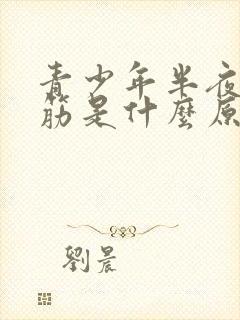 青少年半夜
筋是什麼原
劉晨